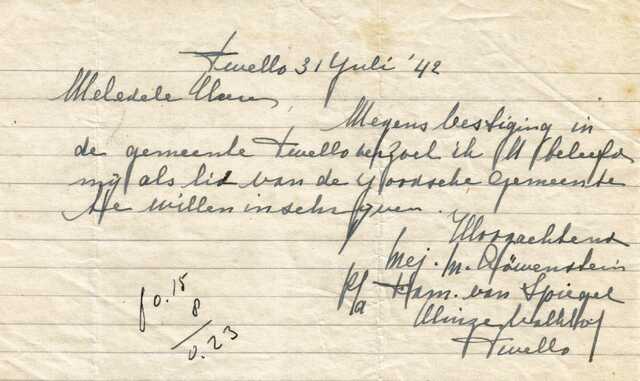 Twello 31 Juli '42
Weledele Heer,
Wegens vestiging in
de gemeente Twello verzoek ik U beleefd
mij als lid van de Joodsche Gemeente
te willen inschrijven.
Hoogachtend
Mej. M. Löwenstein
p/a Fam. van Spiegel
Twello
f 0.15
8
0.23